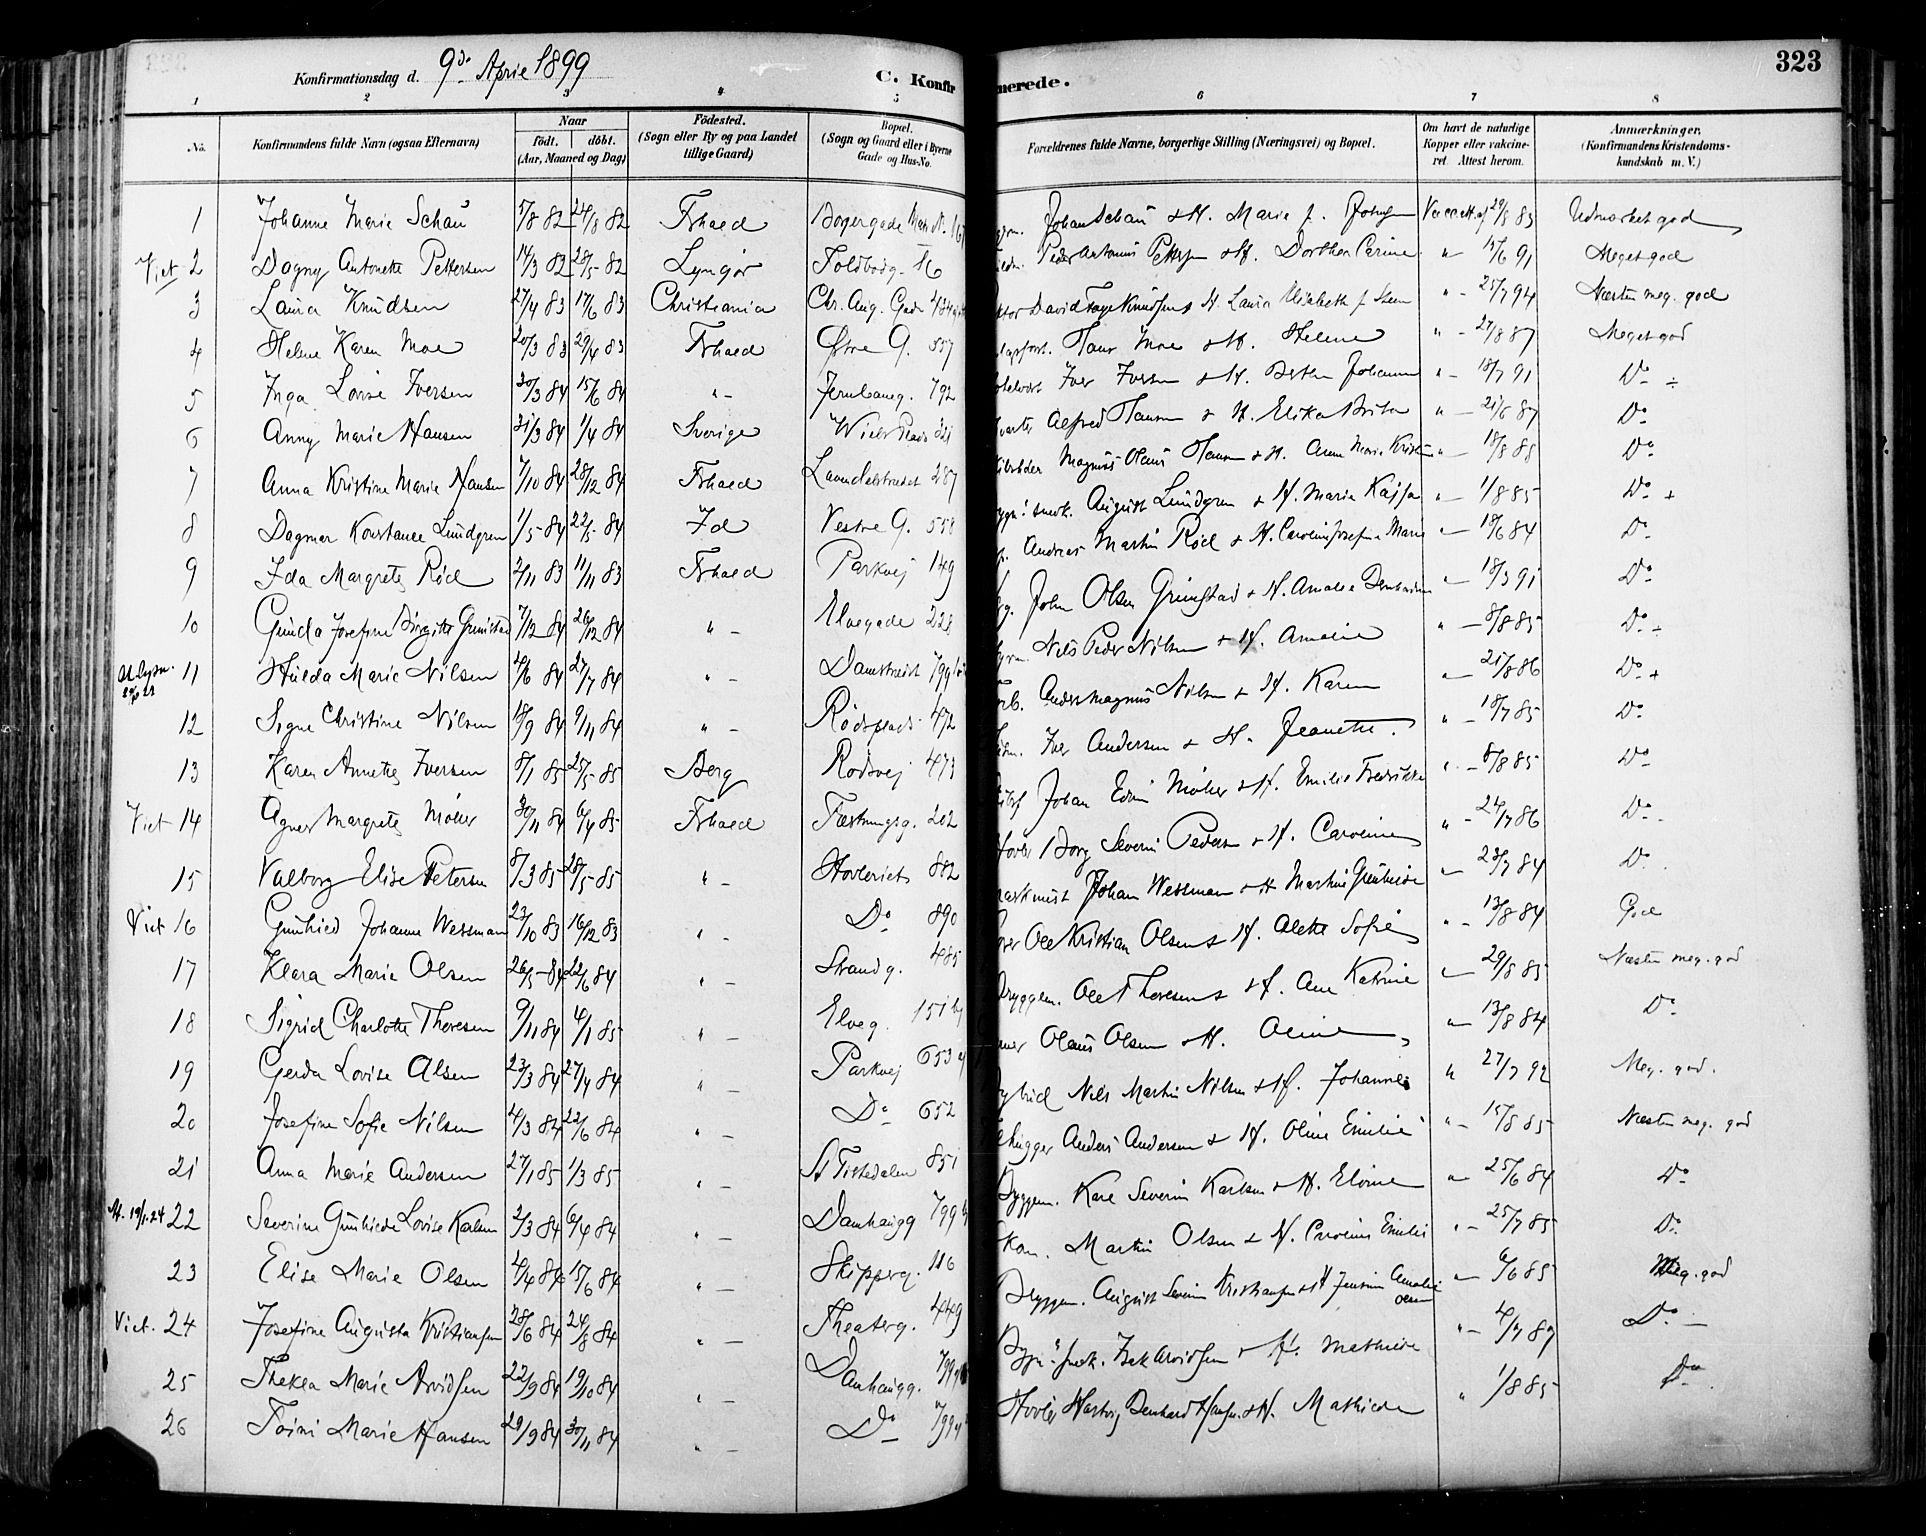 323
Konfirmationsdag d. 9de April 1899
C. Konfirmerede.
1 2 3 4 5 6 7 8
No.
Konfirmandens fulde Navn (ogsaa Efternavn)
Naar
födt. döbt.
(Aar, Maaned og Dag)
Födested.
(Sogn eller By og paa Landet
tillige Gaard)
Bopæl.
(Sogn og Gaard eller i Byerne
Gade og Hus-No.
Forældrenes fulde Navne, borgerlige Stilling (Næringsvei) og Bopæl.
Om havt de naturlige
Kopper eller vakcine-
ret. Attest herom.
Anmærkninger.
(Konfirmandens Kristendoms-
kundskab m. V.)
1 Johanne Marie Schau 5/8 82 24/8 82 Frhald Borgergade Johan Schau & H. Marie f. 29/8 83 Udmærket god
Vict 2 Dagny Antonette Pettersen 14/3 82 28/5 82 Lyngør Toldbodg. 16 Peder Antonius Pettersen & H. Dorthea Carine " - 17/6 91 Meget god
3 Laura Knudsen 27/4 83 17/6 83 Christiania Chr. Aug. Gade 434 David Knudsen & H. Laura Elisabeth f. Steen " - 25/7 94 Næsten meg. god
4 Helene Karen Moe 20/3 83 29/4 83 Frhald Østre G. 557 Hans Moe & H. Helene " - 27/8 87 Meget god
5 Inga Lovise Iversen 30/3 84 15/6 84 " - Jernbaneg. 792 Iver Iversen & H. Johanne " - 18/7 91 Do ÷
6 Anny Marie Hansen 31/3 84 1/4 84 Sverige Wiels Plads 321 Alfred Hansen & H. Elika Brita " - 21/6 87 Do
7 Anna Kristine Marie Hansen 7/10 84 28/12 84 Frhald Lavendelstrædet 287 Magnus Olaus Hansen & H. Anne Marie " - 18/8 85 Do
8 Dagmar Konstance Lundgren 1/5 84 22/5 84 Id Vestre G. 558 August Lundgren & H. Maria Kajsa " - 1/8 85 Do +
9 Ida Margrete Röd 2/11 83 11/11 83 Frhald Parkvej 149 Andreas Martin Röd & H. Carolin Josefine Marie " - 18/6 84 Do
10 Gunda Josefine Birgitte Grimstad 7/12 84 26/12 84 " - Elvegade 223 John Olsen Grimstad & H. Amalie " - 18/3 91 Do
11 Hulda Marie Nilsen 4/6 84 27/7 84 " - Damstrædet 799 Nils Peder Nilsen & H. Amalie " - 8/8 85 Do -
12 Signe Christine Nilsen 18/9 84 9/11 84 " - Rödsplads 472 Anders Magnus Nilsen & H. Karen " - 21/8 86 Do +
13 Karen Annette Iversen 8/1 85 25/5 85 Berg Rödsvej 473 Iver Andersen & H. Jeanette. " - 18/7 85 Do
Vict 14 Agnes Margrete Möller 30/11 84 6/4 85 Frhald Fæstningsg. 202 Johan Edvin Möller & H. Emilie Fredrikke " - 8/8 85 Do
15 Valborg Elise Petersen 8/3 85 28/5 85 " - Hovleriet 882 Borg Severin Pedersen & H. Caroline " - 24/7 86 Do
Vict 16 Gunhild Johanne Wessman 23/10 83 16/12 83 " - Do 890 Johan Wessman & H. Martine " - 23/7 84 Do
17 Klara Marie Olsen 26/5 84 22/6 84 " - Strandg. 485 Ole Kristian Olsen & H. Alette Sofie " - 13/8 84 God
18 Sigrid Charlotte Thoresen 9/11 84 4/1 85 " - Elveg. 151 Bryggem. Ole Thoresen & H. Ane Katrine " - 29/8 85 Næsten meg. god
19 Gerda Lovise Olsen 23/3 84 27/4 84 " - Parkvej 653 Olaus Olsen & H. Oline " - 13/8 84 Do
20 Josefine Sofie Nilsen 4/3 84 22/6 84 " - Do 652 Nils Martin Nilsen & H. Johanne " 27/7 92 Meg. god.
21 Anna Marie Andersen 27/1 85 1/3 85 " - St Tistedalen 851 Anders Andersen & H. Oline Emilie " - 15/8 85 Næsten meg. god
At. 19/1.24 22 Severine Gunhilde Lovise Karlsen 2/3 84 6/4 84 " - Damhaugg 799 Bryggem. Karl Severin Karlsen & H. Elvine " - 25/6 84 Do
23 Elise Marie Olsen 4/4 84 15/6 84 " - Skipperg. 116 Martin Olsen & H. Caroline Emilie " - 25/7 85 Do
Vict. 24 Josefine Augusta Kristiansen 28/6 84 24/8 84 " - Theaterg. 449 Bryggem. August Severin Kristiansen & H. Amalie " - 6/6 85 Meg. god
25 Thekla Marie Arvidsen 22/9 84 19/10 84 " - Damhaugg. 799 Isak Arvidsen & H. Mathilde " - 4/7 87 Do -
26 Toini Marie Hansen 29/9 84 30/11 84 " - Do 799 Hartvig Bernhard Hansen & H. Mathilde " 1/8 85 Do